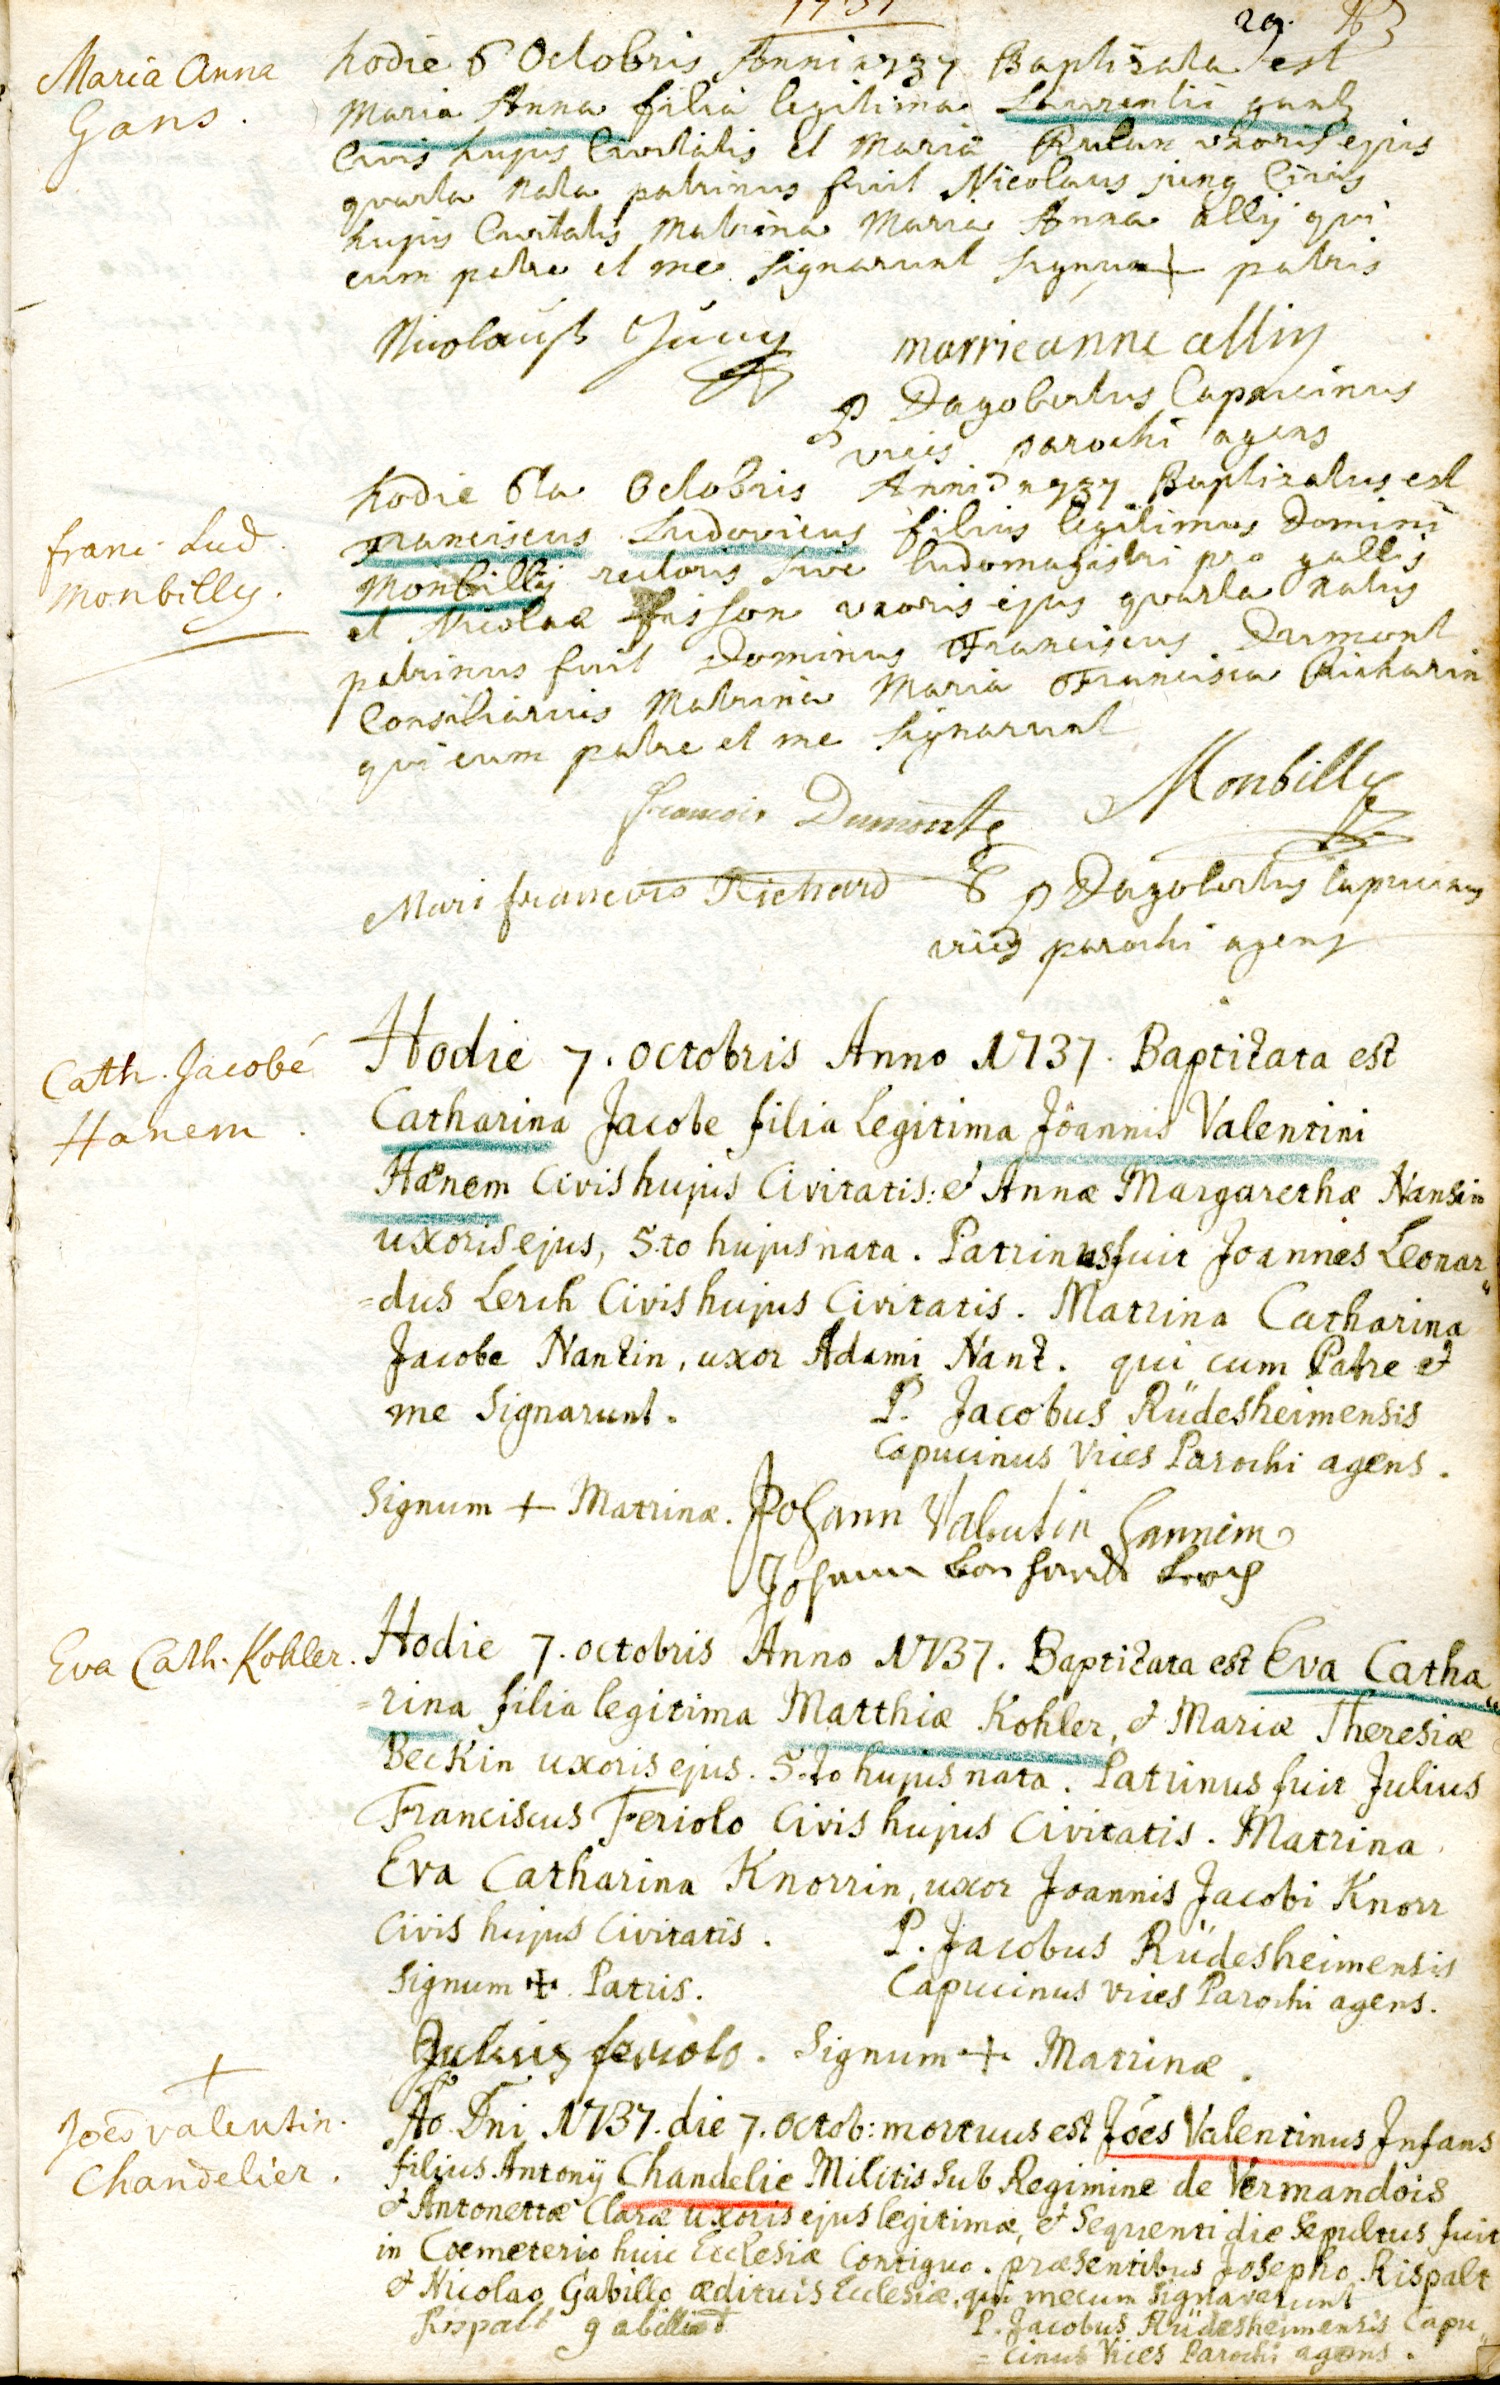 1737
29.
Maria Anna
Gans.
hodie 6 Octobris Anni 1737 Baptizata est
Maria Anna filia legitima Laurentii gantz
Civis hujus Civitatis et Maria Rulan uxoris ejus
quarta nata patrinus fuit Nicolaus jung Civis
hujus Civitatis Matrina Maria Anna allij qui
cum patre et me signarunt signum + patris
Nicolauss Jung marrieanne allin
P Dagobertus Capucinus
vices parochi agens
franc. Lud.
Monbilly.
hodie 6ta Octobris Anni 1737 Baptizatus est
franciscus Ludovicus filius legitimus Domini
Monbilly rectoris sive ludomagistri pro gallis
et Nicolae uxoris ejus quarta natus
patrinus fuit Dominus Franciscus Dumont
Consiliarius Matrina Maria Francisca Richarin
qui cum patre et me signarunt
Monbilly
francois Dumont
Mari francois Richard P Dagobertus Capucinus
vices parochi agens
Cath. Jacobé
Hanem.
Hodie 7. octobris Anno 1737. Baptizata est
Catharina Jacobe filia Legitima Joannis Valentini
Hænem Civis hujus Civitatis: et Annæ Margarethæ Nansin
uxoris ejus, 5.to hujus nata. Patrinus fuit Joannes Leonar"
=dus Lerch Civis hujus Civitatis. Matrina Catharina
Jacobe Nantzin, uxor Adami Nantz. qui cum Patre et
me Signarunt. P. Jacobus Rüdesheimensis
Capucinus Vices Parochi agens.
Signum + Matrinæ. Johann Valentin Hannem
Johann Leonhardt Lerch
Eva Cath. Kohler.
Hodie 7. octobris Anno 1737. Baptizata est Eva Catha"
=rina filia legitima Matthiæ Kohler, et Mariæ Theresiæ
Beckin uxoris ejus. 5.to hujus nata. Patrinus fuit Julius
Franciscus Feriolo Civis hujus Civitatis. Matrina
Eva Catharina Knorrin, uxor Joannis Jacobi Knorr
Civis hujus Civitatis. P. Jacobus Rüdesheimensis
Signum + Patris. Capucinus vices Parochi agens.
Julius feriolo. Signum + Matrinæ.
+
Joes valentin.
Chandelier.
Ao. Dni. 1737. die 7. octob: mortuus est Jôes Valentinus Infans
filius Antonÿ Chandelie Militis sub Regimine de Vermandois
et Antonettæ Claræ uxoris ejus legitimæ, et Sequenti die Sepultus fuit
in Coemeterio huic Ecclesiæ Contiguo. præsentibus Josepho Rispalt
et Nicolao Gabillo ædituis Ecclesiæ, qui mecum signaverunt
Rispalt gabilliot P. Jacobus Rüdesheimensis Capu"
=cinus Vices Parochi agens.